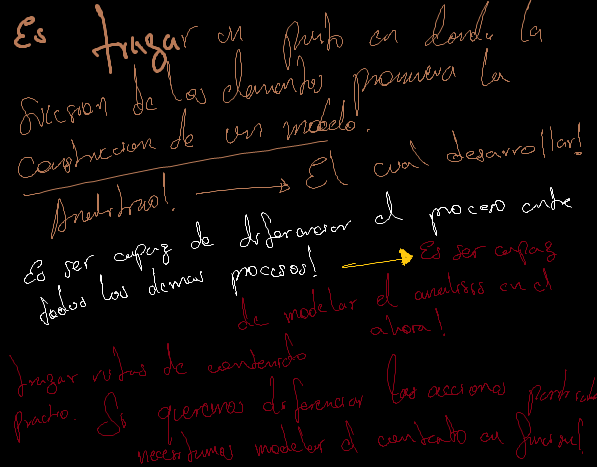 Es trazar un punto en donde la
fucsion de los elementos promueva la
construccion de un modelo.
Analitico! → El cual desarrollar!
Es ser capaz de diferenciar el proceso entre
todos los demas procesos! → Es ser capaz
de modelar el analisis en el
ahora!
trazar rutas de contenido
practico. Si queremos diferenciar las acciones
necesitamos modelar el contexto en